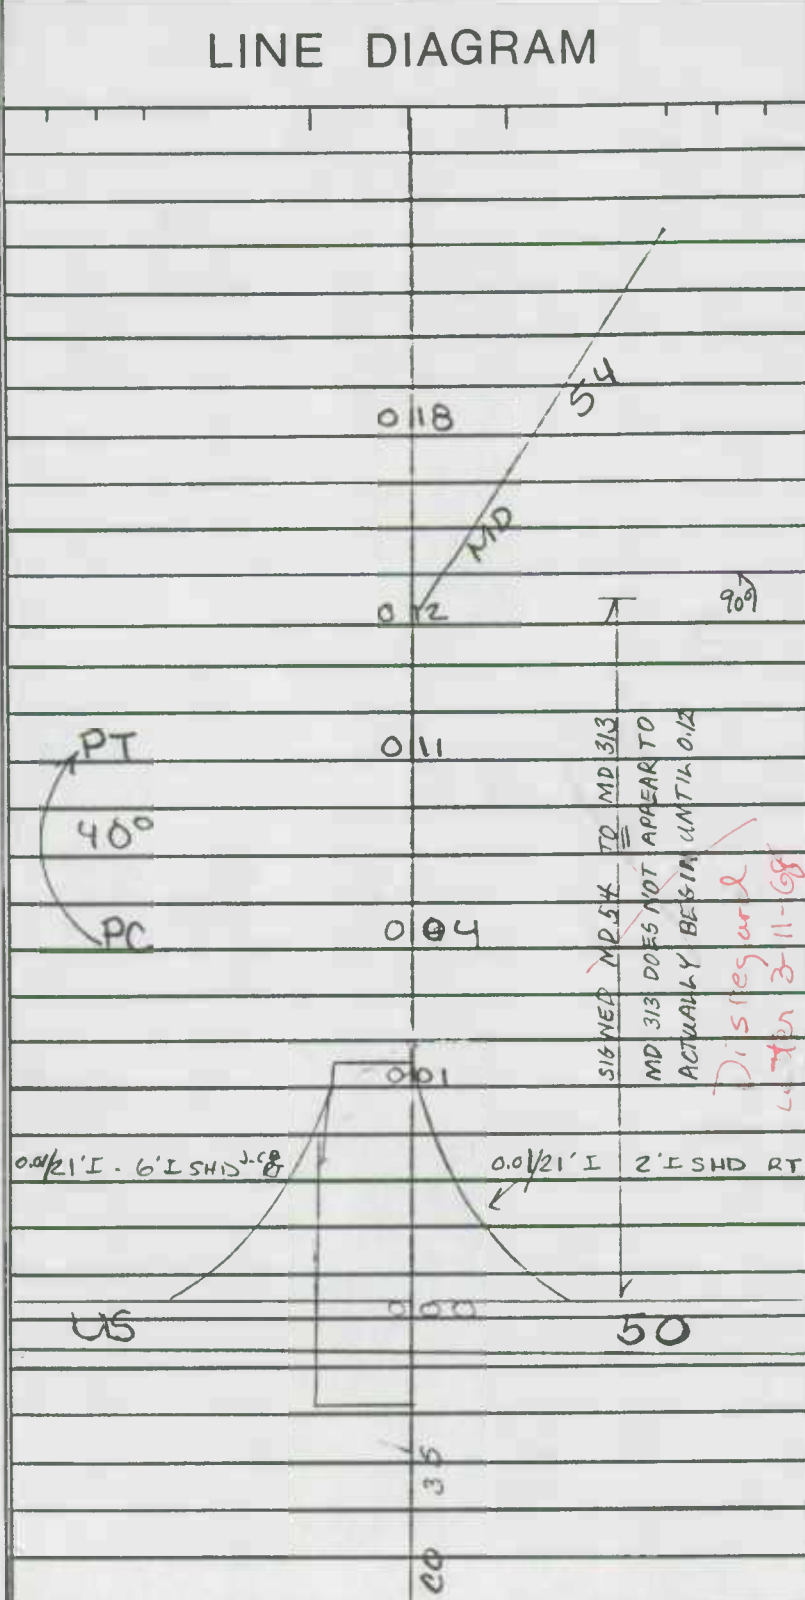 LINE DIAGRAM
54
0 18
MD
90°
0 12
PT
0 11
40°
PC
0 04
SIGNED MD 54 TO MD 313
MD 313 DOES NOT APPEAR TO
ACTUALLY BEGIN UNTIL 0.12
Disregard
3-11-68
0 01
0.01/21'I - 6'I SHD
0.01/21'I 2'I SHD RT
0 00
US 50
CO 35